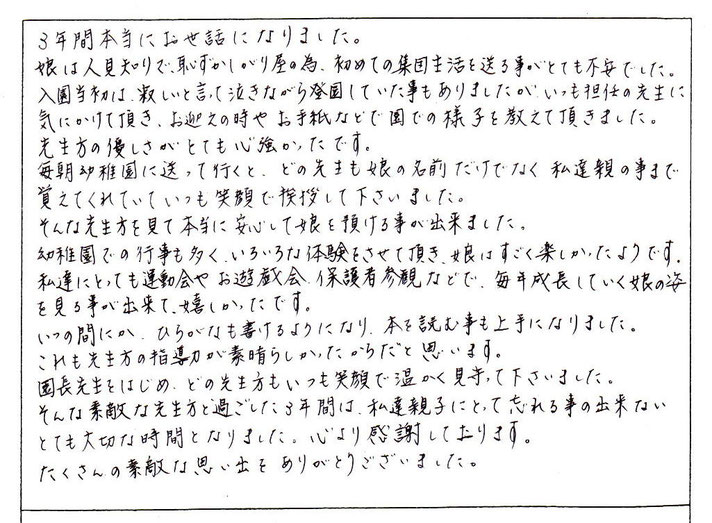 3年間本当にお世話になりました。
娘は人見知りで、恥ずかしがり屋の為、初めての集団生活を送る事がとても不安でした。
入園当初は、寂しいと言って泣きながら登園していた事もありましたが、いつも担任の先生に
気にかけて頂き、お迎えの時やお手紙などで園での様子を教えて頂きました。
先生方の優しさがとても心強かったです。
毎朝幼稚園に送って行くと、どの先生も娘の名前だけでなく私達親の事まで
覚えてくれていていつも笑顔で挨拶して下さいました。
そんな先生方を見て本当に安心して娘を預ける事が出来ました。
幼稚園での行事も多く、いろいろな体験をさせて頂き、娘はすごく楽しかったようです。
私達にとっても運動会やお遊戯会、保護者参観などで、毎年成長していく娘の姿
を見る事が出来て、嬉しかったです。
いつの間にか、ひらがなも書けるようになり、本を読む事も上手になりました。
これも先生方の指導力が素晴らしかったからだと思います。
園長先生をはじめ、どの先生方もいつも笑顔で温かく見守って下さいました。
そんな素敵な先生方と過ごした3年間は、私達親子にとって忘れる事の出来ない
とても大切な時間となりました。心より感謝しております。
たくさんの素敵な思い出をありがとうございました。